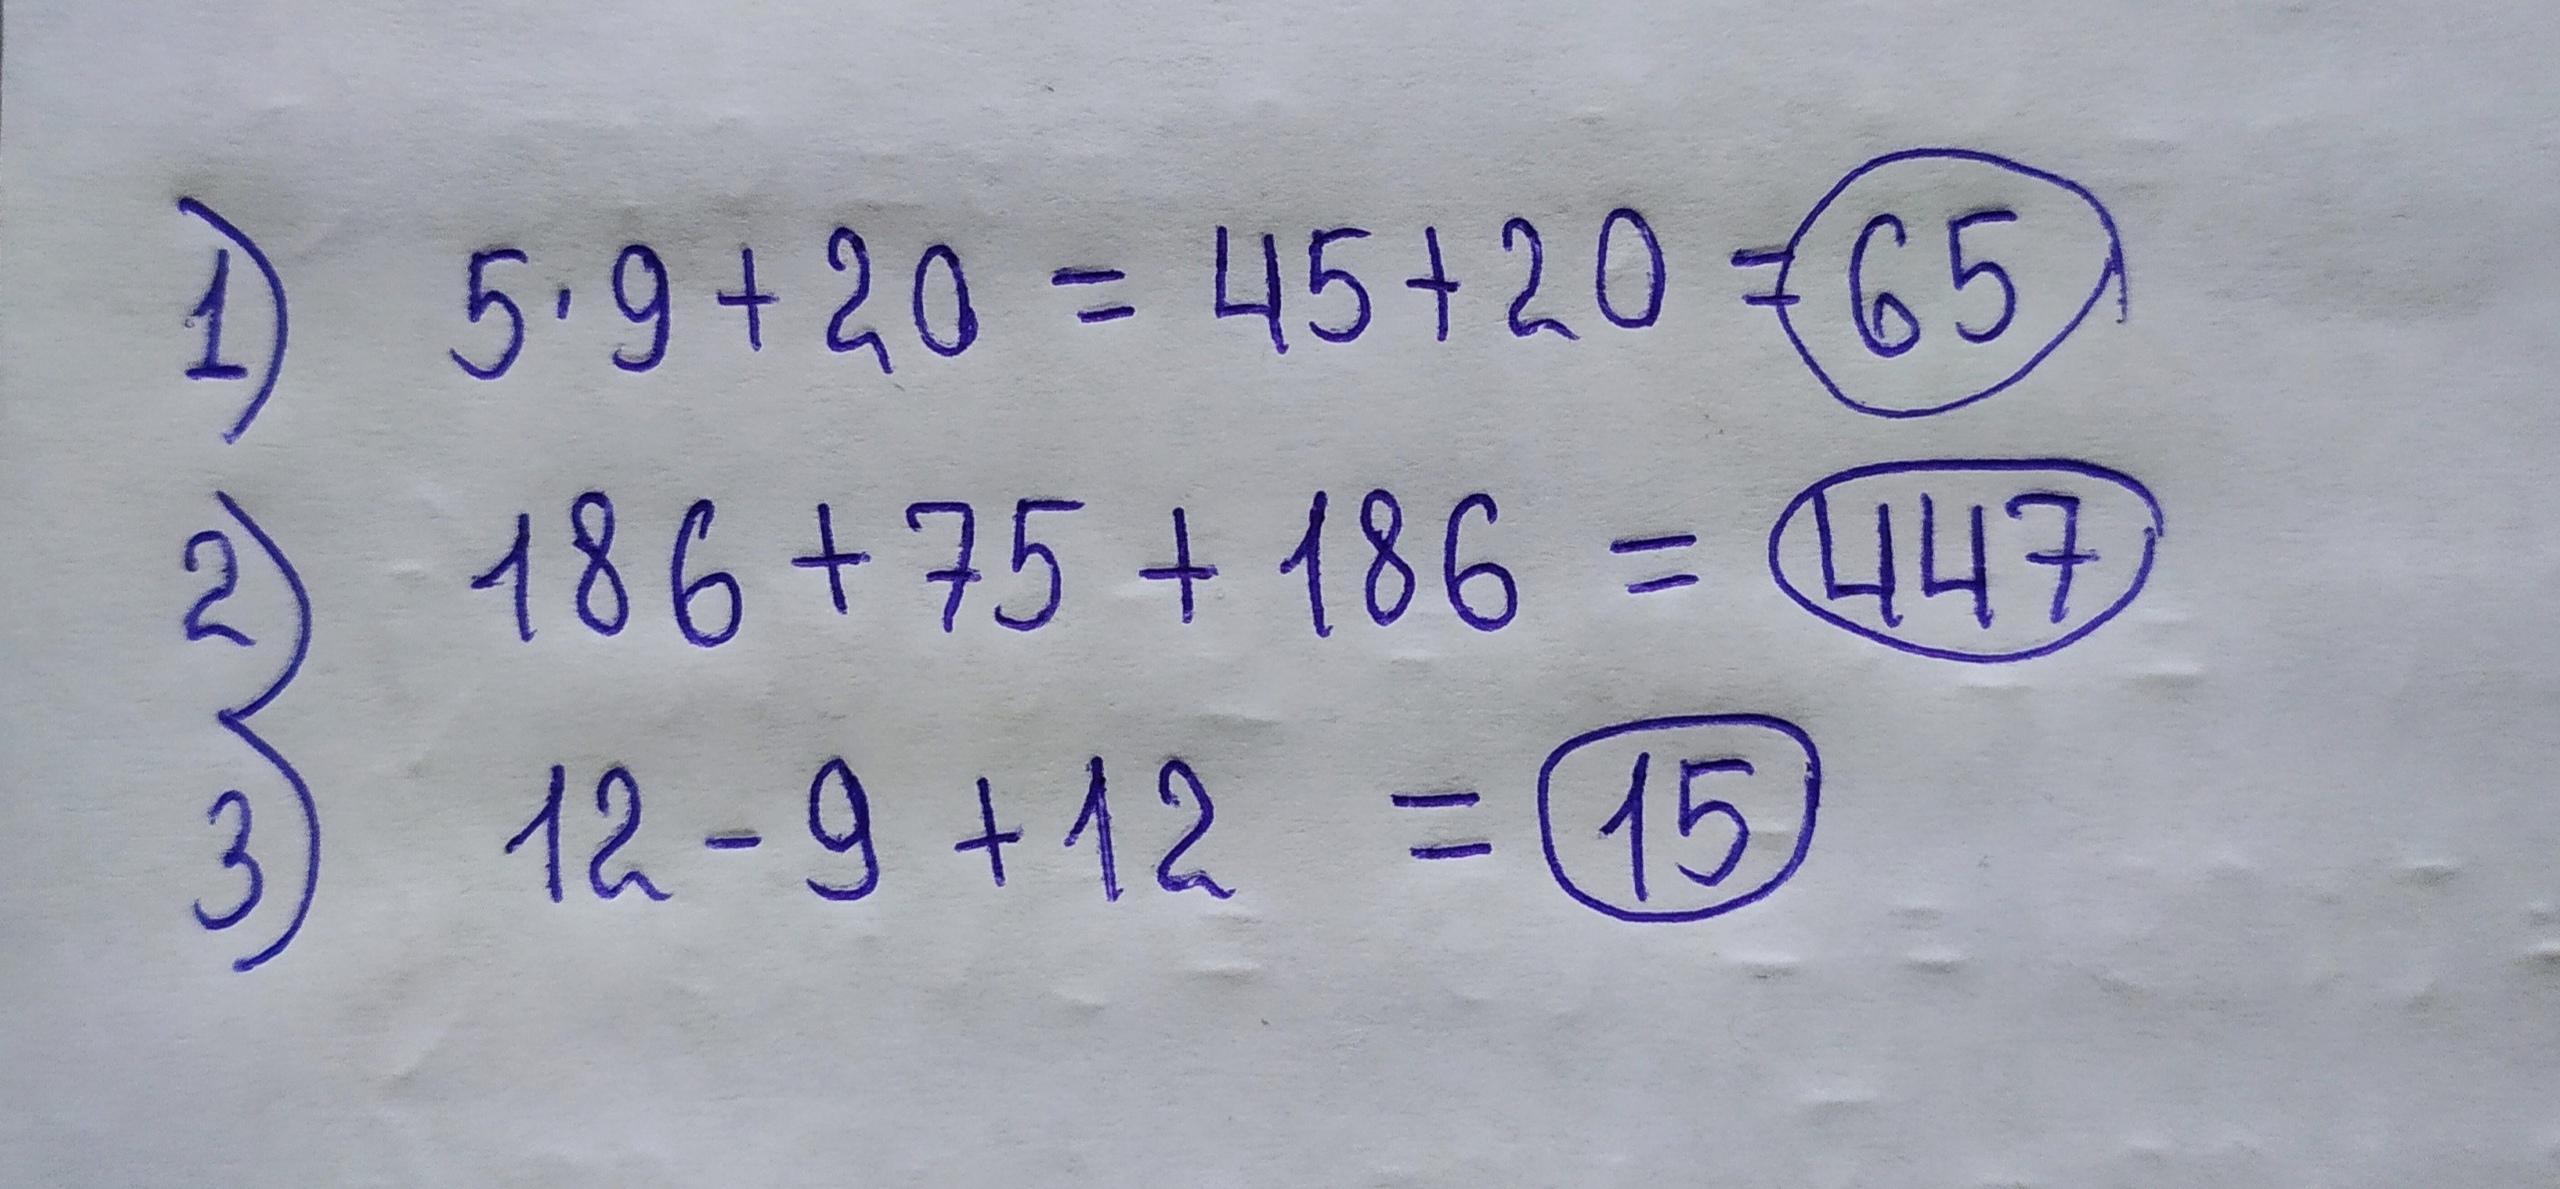 1) 5·9+20 = 45+20 = 65
2) 186+75+186 = 447
3) 12-9+12 = 15